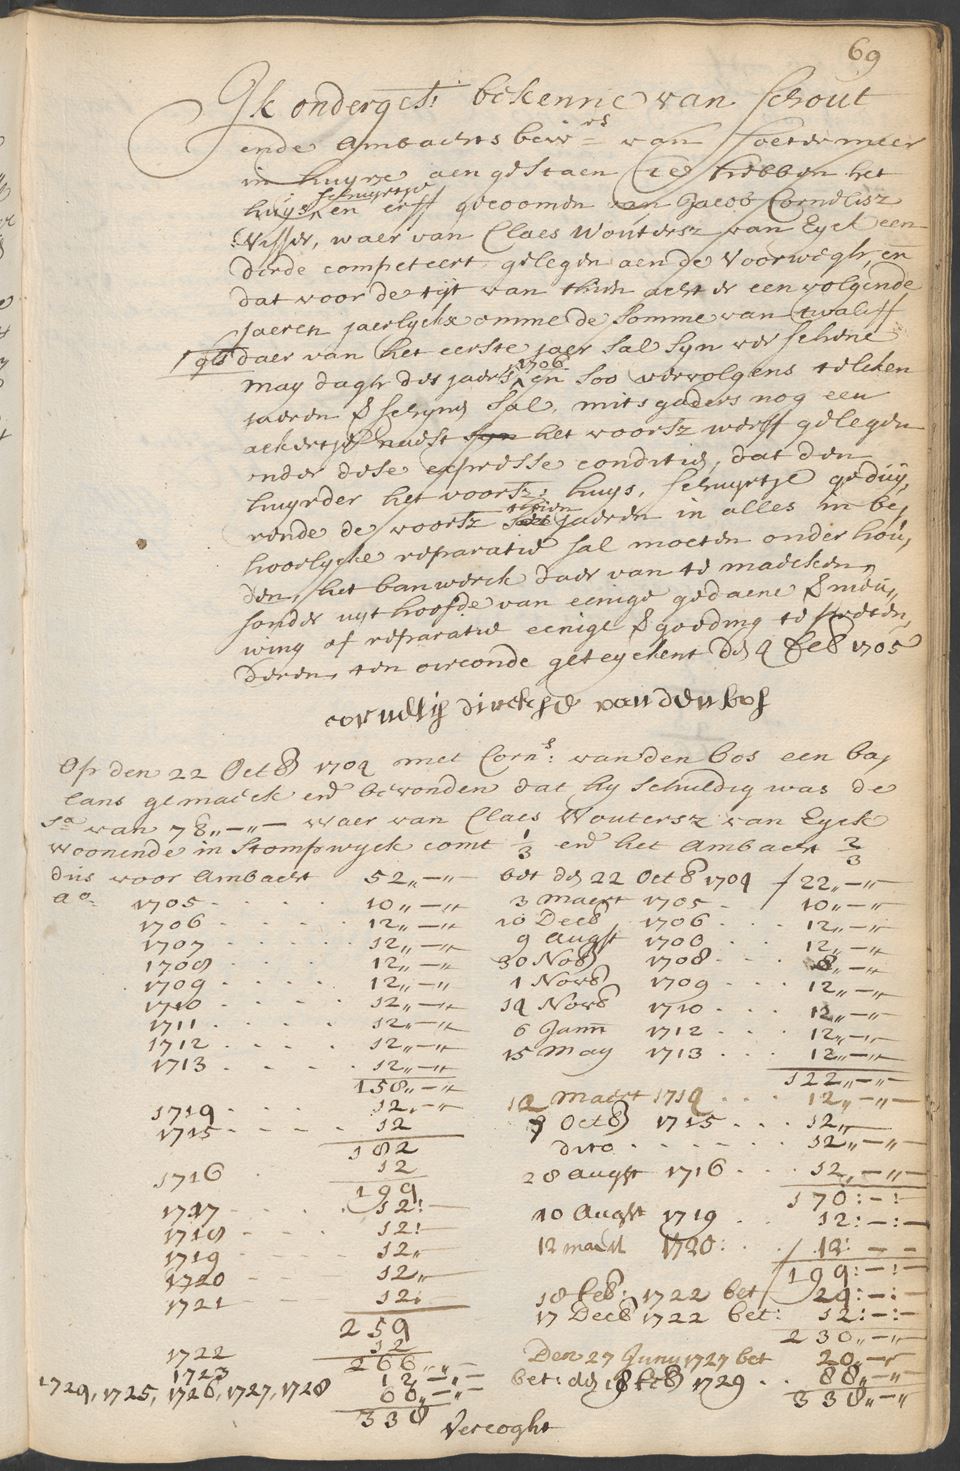 69
Ik onderget: bekenne van Schout
ende Ambachts bew.rs van Soetermeer
in huyre aengestaen te hebben het
huys schuyrtje en erff gecoomen van Jacob Cornelisz
Visser, waer van Claes Woutersz van Eyck een
derde competeert, gelegen aen de Voorwegh, en
dat voor de tijt van thien achter een volgende
Jaeren jaerlyckx omme de somme van twaliff
gls daer van het eerste jaer sal syn verschene
may dagh des jaers 1706 en soo vervolgens telcken
jaeren &schyne sal, mitsgaders nog een
ackertje naest syn het voorsz werff gelegen
onder dese expresse conditie, dat den
huyrder het voorsz: huys, schuyrtje geduy,
rende de voorsz thien jaeren in alles in be,
hoorlycke reparatie sal moeten onder hou,
den, het banwerck daer van te maecken,
sonder uyt hoofde van eenige gedaene &nieu,,
wing of reparatie eenige &goeding te preten,
deren, ten oirconde geteyckent de 4 feb 1705
cornelis dirckse van den bos
Op den 22 Octob 1704 met Corns: van den bos een ba,
lans gemaeck end bevonden dat hy schuldig was de
sa van 78,,-,,- waer van Claes Woutersz van Eyck
woonende in Stompwyck comt 1/3 end het Ambacht 2/3
dus voor Ambacht 52,,-,,- bet de 22 Octob 1704 f 22,,-,,-
ao 1705 . . . 10,,-,,- 3 Maert 1705 . . 10,,-,,-
1706 . . . 12,,-,,- 10 Decb 1706 . . . 12,,-,,-
1707 . . . . 12,,-,,- 9 Augst 1708 . . 12,,-,,-
1708 . . . . 12,,-,,- 30 Nob 1708 . . . 8,,-,,-
1709 . . . . 12,,-,,- 1 Novb 1709 . . . 12,,-,,-
1710 . . . . 12,,-,,- 14 Novb 1710 . . . 12,,-,,-
1711 . . . . 12,,-,,- 6 Jann 1712 . . . 12,,-,,-
1712 . . . . 12,,-,,- 15 May 1713 . . . 12,,-,,-
1713 . . . . 12,,-,,- 122,,-,,-
158,,-,,- 12 Maert 1714 . . . 12,,-,,-
1714 . . . . 12,,-,,- 9 Octob 1715 . . . 12,,
1715 . . . . 12 dito . . . . . 12,,-,,-
182
1716 . 12 28 Augst 1716 . . . 12,,-,,-
194 170:-:-
1717 - - - 12: 10 Augst 1719 . . 12:-:-
1718 - - - 12: 12 maert 1720: . . / 12:--
1719 - - - 12,, 194:-:-
1720 - - - 12,, 18 feb: 1722 bet 24:-:-
1721 - - - 12: 17 Decb 1722 bet: 12:-:-
254 230,,-,,-
1722 12 Den 27 Juny 1727 bet 20,,-,,-
266,,-,,-
1723 12,,-,,- bet: de 18 feb 1729 . . 88,,-,,-
1724, 1725, 1726, 1727, 1728 60,,-,,- 338,,-,,-
338
Vercoght